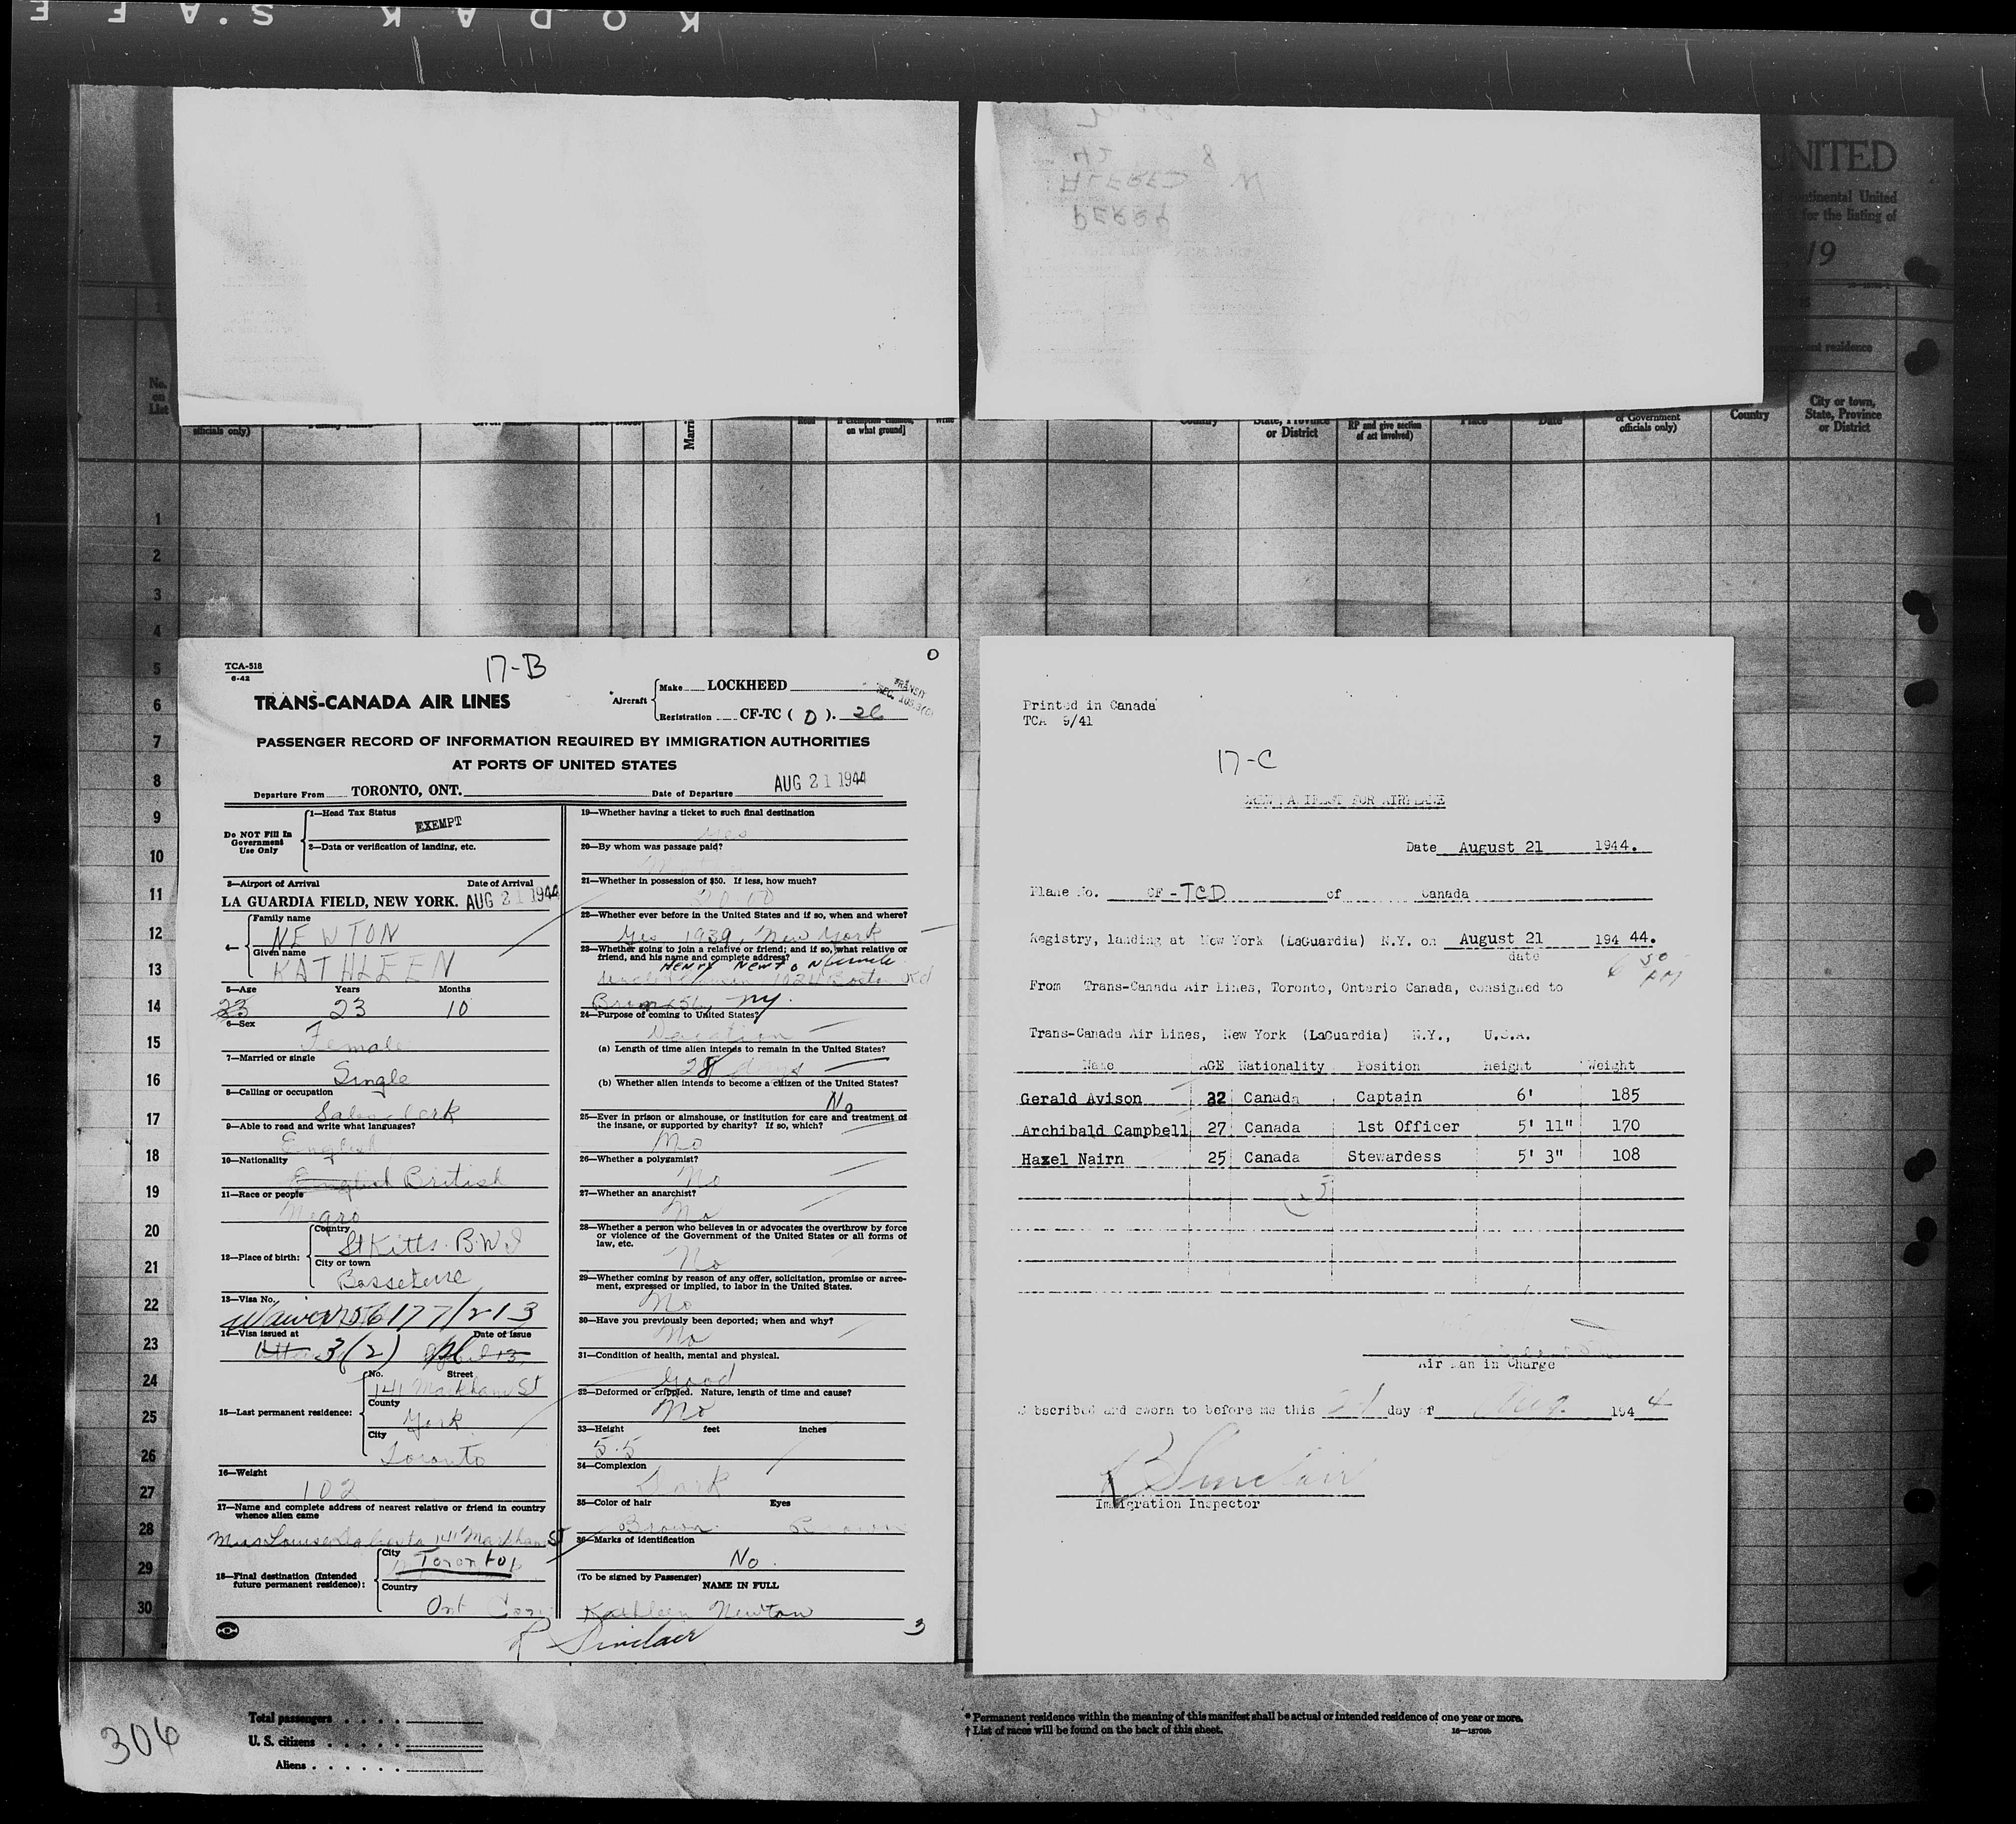 KODAK S.A F E
UNITED
ntinental United
for the listing of
19
ent residence
No.
on
List
officials only)
Given name
Read
on what ground]
Write
Country
State, Province
or District
RP and give section
of act involved)
Place
Date
of Government
officials only)
Country
City or town,
State, Province
or District
PERRY
ALFRED
1
2
3
4
5
6
7
8
9
10
11
12
13
14
15
16
17
18
19
20
21
22
23
24
25
26
27
28
29
30
TCA-518
6-42
17-B
0
TRANS-CANADA AIR LINES
*Aircraft
Make LOCKHEED
Registration CF-TC ( D ). 26
TRANSIT
PASSENGER RECORD OF INFORMATION REQUIRED BY IMMIGRATION AUTHORITIES
AT PORTS OF UNITED STATES
Departure From TORONTO, ONT. Date of Departure AUG 21 1944
Do NOT Fill In
Government
Use Only
1—Head Tax Status
EXEMPT
2—Data or verification of landing, etc.
3—Airport of Arrival Date of Arrival
LA GUARDIA FIELD, NEW YORK. AUG 21 1944
4—
Family name
NEWTON
Given name
KATHLEEN
5—Age Years Months
23 23 10
6—Sex
Female
7—Married or single
Single
8—Calling or occupation
Sales clerk
9—Able to read and write what languages?
English
10—Nationality
English British
11—Race or people
Negro
12—Place of birth:
Country
St Kitts. B.W.I
City or town
Basseterre
13—Visa No.
Waiver 756177/213
14—Visa issued at Date of issue
3(2) April 13,
15—Last permanent residence:
No. Street
141 Markham St
County
York
City
Toronto
16—Weight
102
17—Name and complete address of nearest relative or friend in country
whence alien came
Louise 141 Markham St
18—Final destination (Intended
future permanent residence):
City
Toronto
Country
Ont Can
19—Whether having a ticket to such final destination
Yes
20—By whom was passage paid?
21—Whether in possession of $50. If less, how much?
22—Whether ever before in the United States and if so, when and where?
Yes 1939, New York
23—Whether going to join a relative or friend; and if so, what relative or
friend, and his name and complete address?
HENRY NEWTON uncle
Boston Rd
Bronx 56, NY.
24—Purpose of coming to United States?
Vacation
(a) Length of time alien intends to remain in the United States?
28 days
(b) Whether alien intends to become a citizen of the United States?
No
25—Ever in prison or almshouse, or institution for care and treatment of
the insane, or supported by charity? If so, which?
No
26—Whether a polygamist?
No
27—Whether an anarchist?
No
28—Whether a person who believes in or advocates the overthrow by force
or violence of the Government of the United States or all forms of
law, etc.
No
29—Whether coming by reason of any offer, solicitation, promise or agree-
ment, expressed or implied, to labor in the United States.
No
30—Have you previously been deported; when and why?
No
31—Condition of health, mental and physical.
Good
32—Deformed or crippled. Nature, length of time and cause?
No
33—Height feet inches
5.5
34—Complexion
Dark
35—Color of hair Eyes
Brown Brown
36—Marks of identification
No.
(To be signed by Passenger)
NAME IN FULL
Kathleen Newton
R Sinclair
3
Printed in Canada
TCA 9/41
17-C
CREW MANIFEST FOR AIRPLANE
Date August 21 1944.
Plane No. CF-TCD of Canada
Registry, landing at New York (LaGuardia) N.Y. on August 21 194 44.
date
6 30 PM
From Trans-Canada Air Lines, Toronto, Ontario Canada, consigned to
Trans-Canada Air Lines, New York (LaGuardia) N.Y., U.S.A.
Name AGE Nationality Position Height Weight
Gerald Avison 32 Canada Captain 6' 185
Archibald Campbell 27 Canada 1st Officer 5' 11" 170
Hazel Nairn 25 Canada Stewardess 5' 3" 108
3
Air Man in Charge
Subscribed and sworn to before me this 21 day of Aug. 194 4
R Sinclair
Immigration Inspector
306
Total passengers
U. S. citizens
Aliens
* Permanent residence within the meaning of this manifest shall be actual or intended residence of one year or more.
† List of races will be found on the back of this sheet.